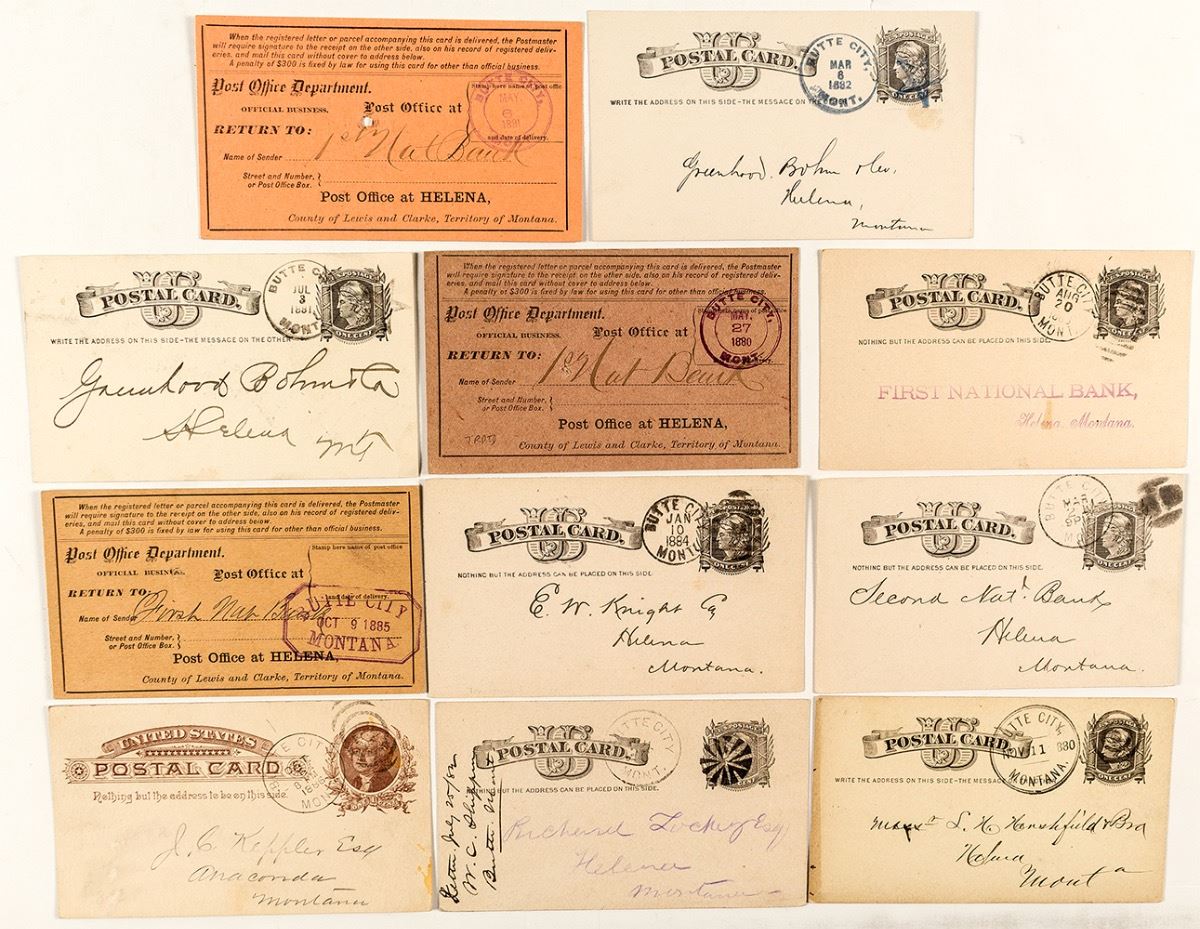 When the registered letter or parcel accompanying this card is delivered, the Postmaster
will require signature to the receipt on the other side, also on his record of registered deliv-
eries, and mail this card without cover to address below.
A penalty of $300 is fixed by law for using this card for other than official business.
Post Office Department.
Stamp here name of post offic
OFFICIAL BUSINESS.
Post Office at
BUTTE CITY,
MAY
6
1891
RETURN TO:
and date of delivery.
Name of Sender
1st Nat Bank
Street and Number,
or Post Office Box.
Post Office at HELENA,
County of Lewis and Clarke, Territory of Montana.
US
POSTAL CARD.
BUTTE CITY,
MAR
6
1882
MONT.
U.S. POSTAGE
ONE CENT
WRITE THE ADDRESS ON THIS SIDE-THE MESSAGE ON THE
Greenhood. Bohm & Co.
Helena,
Montana
US
POSTAL CARD.
BUTTE CI
JUL
3
1881
MONT
POSTAGE
ONE CENT
WRITE THE ADDRESS ON THIS SIDE-THE MESSAGE ON THE OTHER
Greenhood Bohm & Co
Helena MT
When the registered letter or parcel accompanying this card is delivered, the Postmaster
will require signature to the receipt on the other side, also on his record of registered deliv-
eries, and mail this card without cover to address below.
A penalty of $300 is fixed by law for using this card for other than official business.
Post Office Department.
OFFICIAL BUSINESS.
Post Office at
BUTTE CITY,
MAY.
27
1880
MONT.
RETURN TO:
Name of Sender
1st Nat Bank
Street and Number,
or Post Office Box.
Post Office at HELENA,
County of Lewis and Clarke, Territory of Montana.
US
POSTAL CARD.
BUTTE CITY
AUG
20
MONT.
ONE CENT
NOTHING BUT THE ADDRESS CAN BE PLACED ON THIS SIDE.
FIRST NATIONAL BANK,
Helena, Montana.
When the registered letter or parcel accompanying this card is delivered, the Postmaster
will require signature to the receipt on the other side, also on his record of registered deliv-
eries, and mail this card without cover to address below.
A penalty of $300 is fixed by law for using this card for other than official business.
Post Office Department.
Stamp here name of post office
OFFICIAL BUSINESS.
Post Office at
RETURN TO:
and date of delivery.
Name of Sender
First Nat Bank
UTTE CITY
OCT 9 1885
MONTANA
Street and Number,
or Post Office Box.
Post Office at HELENA,
County of Lewis and Clarke, Territory of Montana.
US
POSTAL CARD.
BUTTE CI
JAN
10
1884
MONT
ONE CENT
NOTHING BUT THE ADDRESS CAN BE PLACED ON THIS SIDE.
E. W. Knight Ca
Helena
Montana.
US
POSTAL CARD.
BUTTE CITY
MAR
MONT
ONE CENT
NOTHING BUT THE ADDRESS CAN BE PLACED ON THIS SIDE.
Second Natl. Bank
Helena
Montana.
UNITED STATES
POSTAL CARD
TE CITY
MON
Nothing but the address to be on this side.
J. C. Keppler Esq
Anaconda
Montana
US
POSTAL CARD.
UTTE CITY
MONT.
POSTAGE
ONE CENT
NOTHING BUT THE ADDRESS CAN BE PLACED ON THIS SIDE.
Letter July 20/82
W. C.
Butte Mont
Richard Lockey Esq
Helena
Montana
US
POSTAL CARD.
UTTE CITY,
NOV 11 880
MONTANA.
ONE CENT
WRITE THE ADDRESS ON THIS SIDE-THE MESSAGE
L. H. Hershfield & Bro
Helena
Mont a